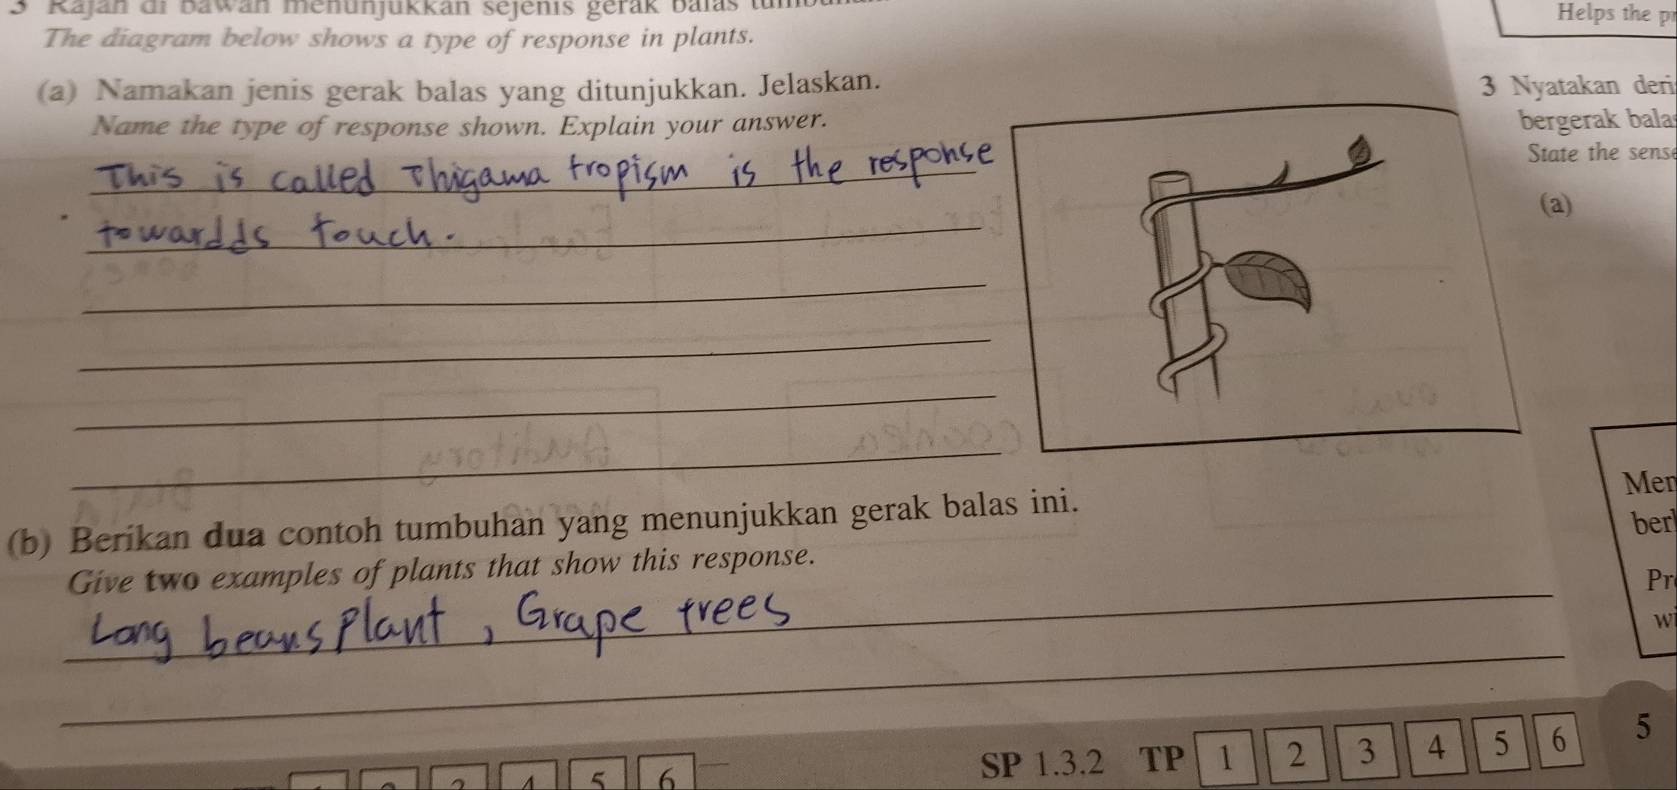 3 Rajah di bawah menunjukkan sejenis gerak balas
The diagram below shows a type of response in plants.
(a) Namakan jenis gerak balas yang ditunjukkan. Jelaskan.
Name the type of response shown. Explain your answer.
This is called Thigama tropism is the response
towardds touch.
(b) Berikan dua contoh tumbuhan yang menunjukkan gerak balas ini.
Give two examples of plants that show this response.
Long beans Plant, Grape trees
SP 1.3.2 TP 1 2 3 4 5 6
5 6
Helps the
3 Nyatakan
bergerak
State the
(a)
5